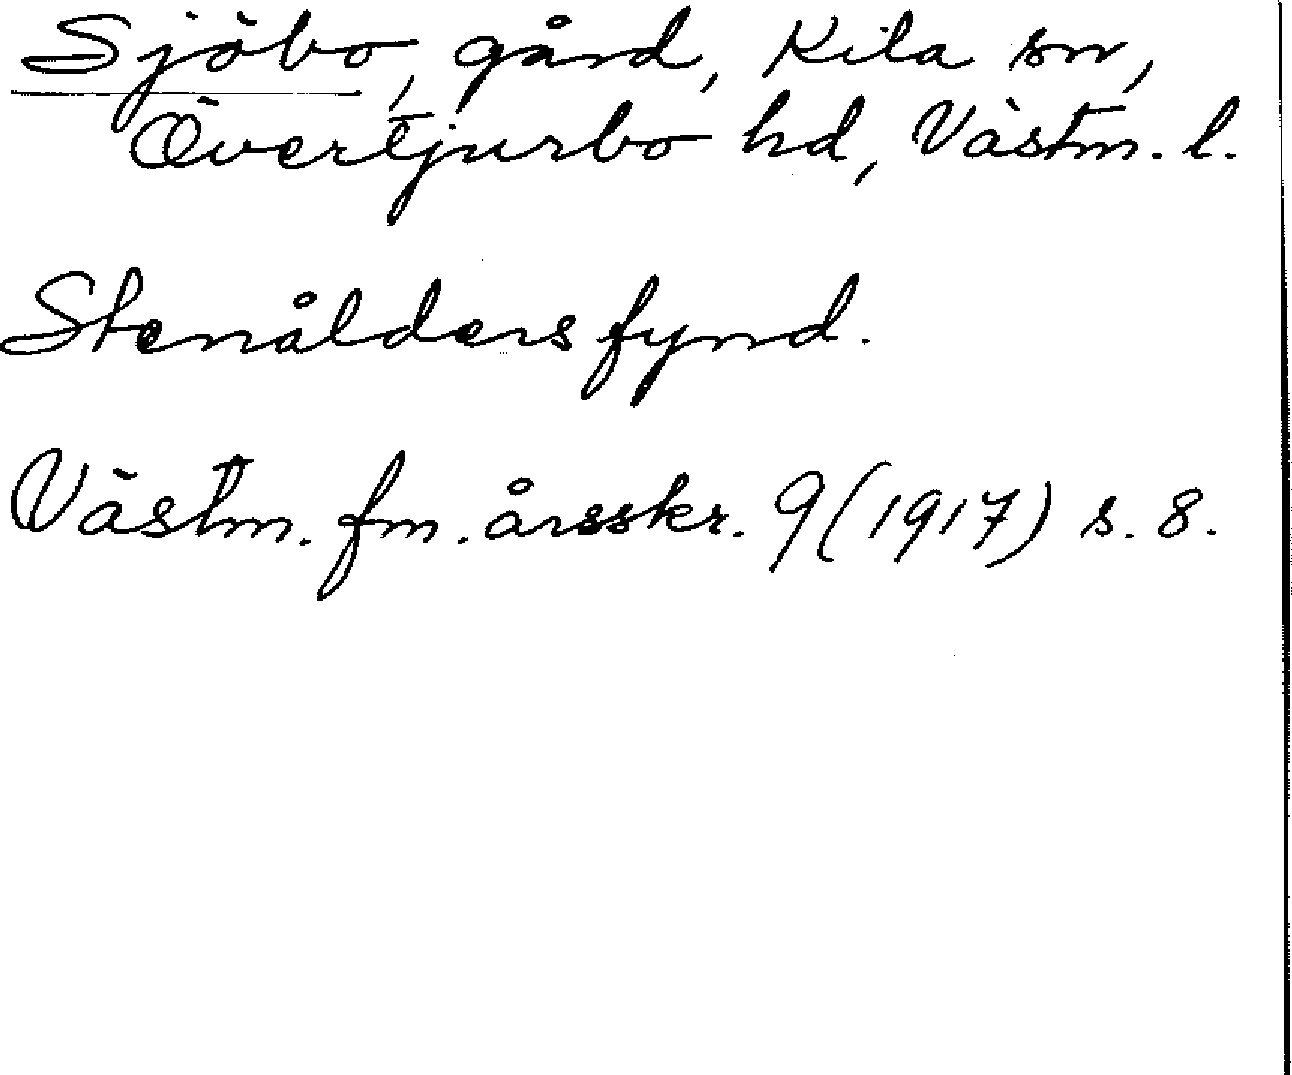 Sjöbo, gård, Kila sn,
Övertjurbo hd, Västm. l.
Stenåldersfynd.
Västm. fm. årsskr. 9 (1917) s. 8.